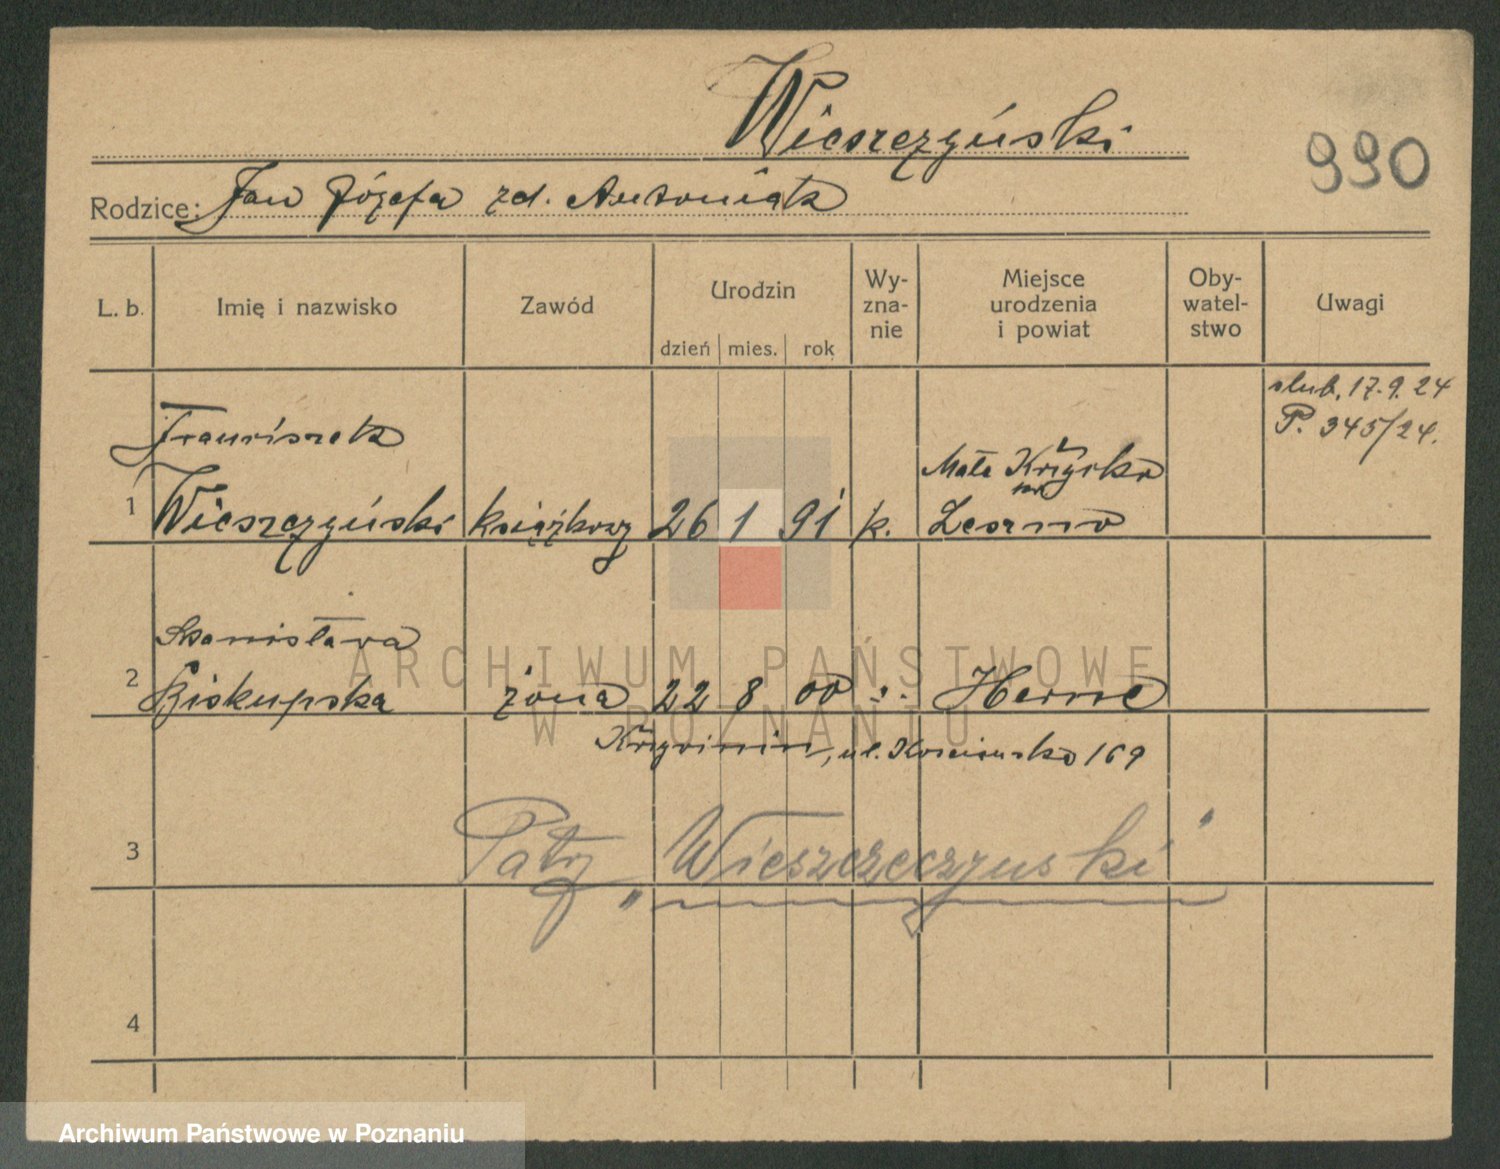 Wieszczyński
990
Rodzice: Jan Józefa zd. Antoniak
L. b. Imię i nazwisko Zawód Urodzin dzień mies. rok Wy-zna-nie Miejsce urodzenia i powiat Oby-watel-stwo Uwagi
ślub. 17.9.24
P. 345/24.
Franciszek
Mała
1 Wieszczyński książkowy 26 1 91 k. Leszno
Stanisława
2 Biskupska żona 22 8 00 Herne
ul. Kościuszko 169
3 Patrz „Wieszczeczyński"
4
ARCHIWUM PAŃSTWOWE
W POZNANIU
Archiwum Państwowe w Poznaniu